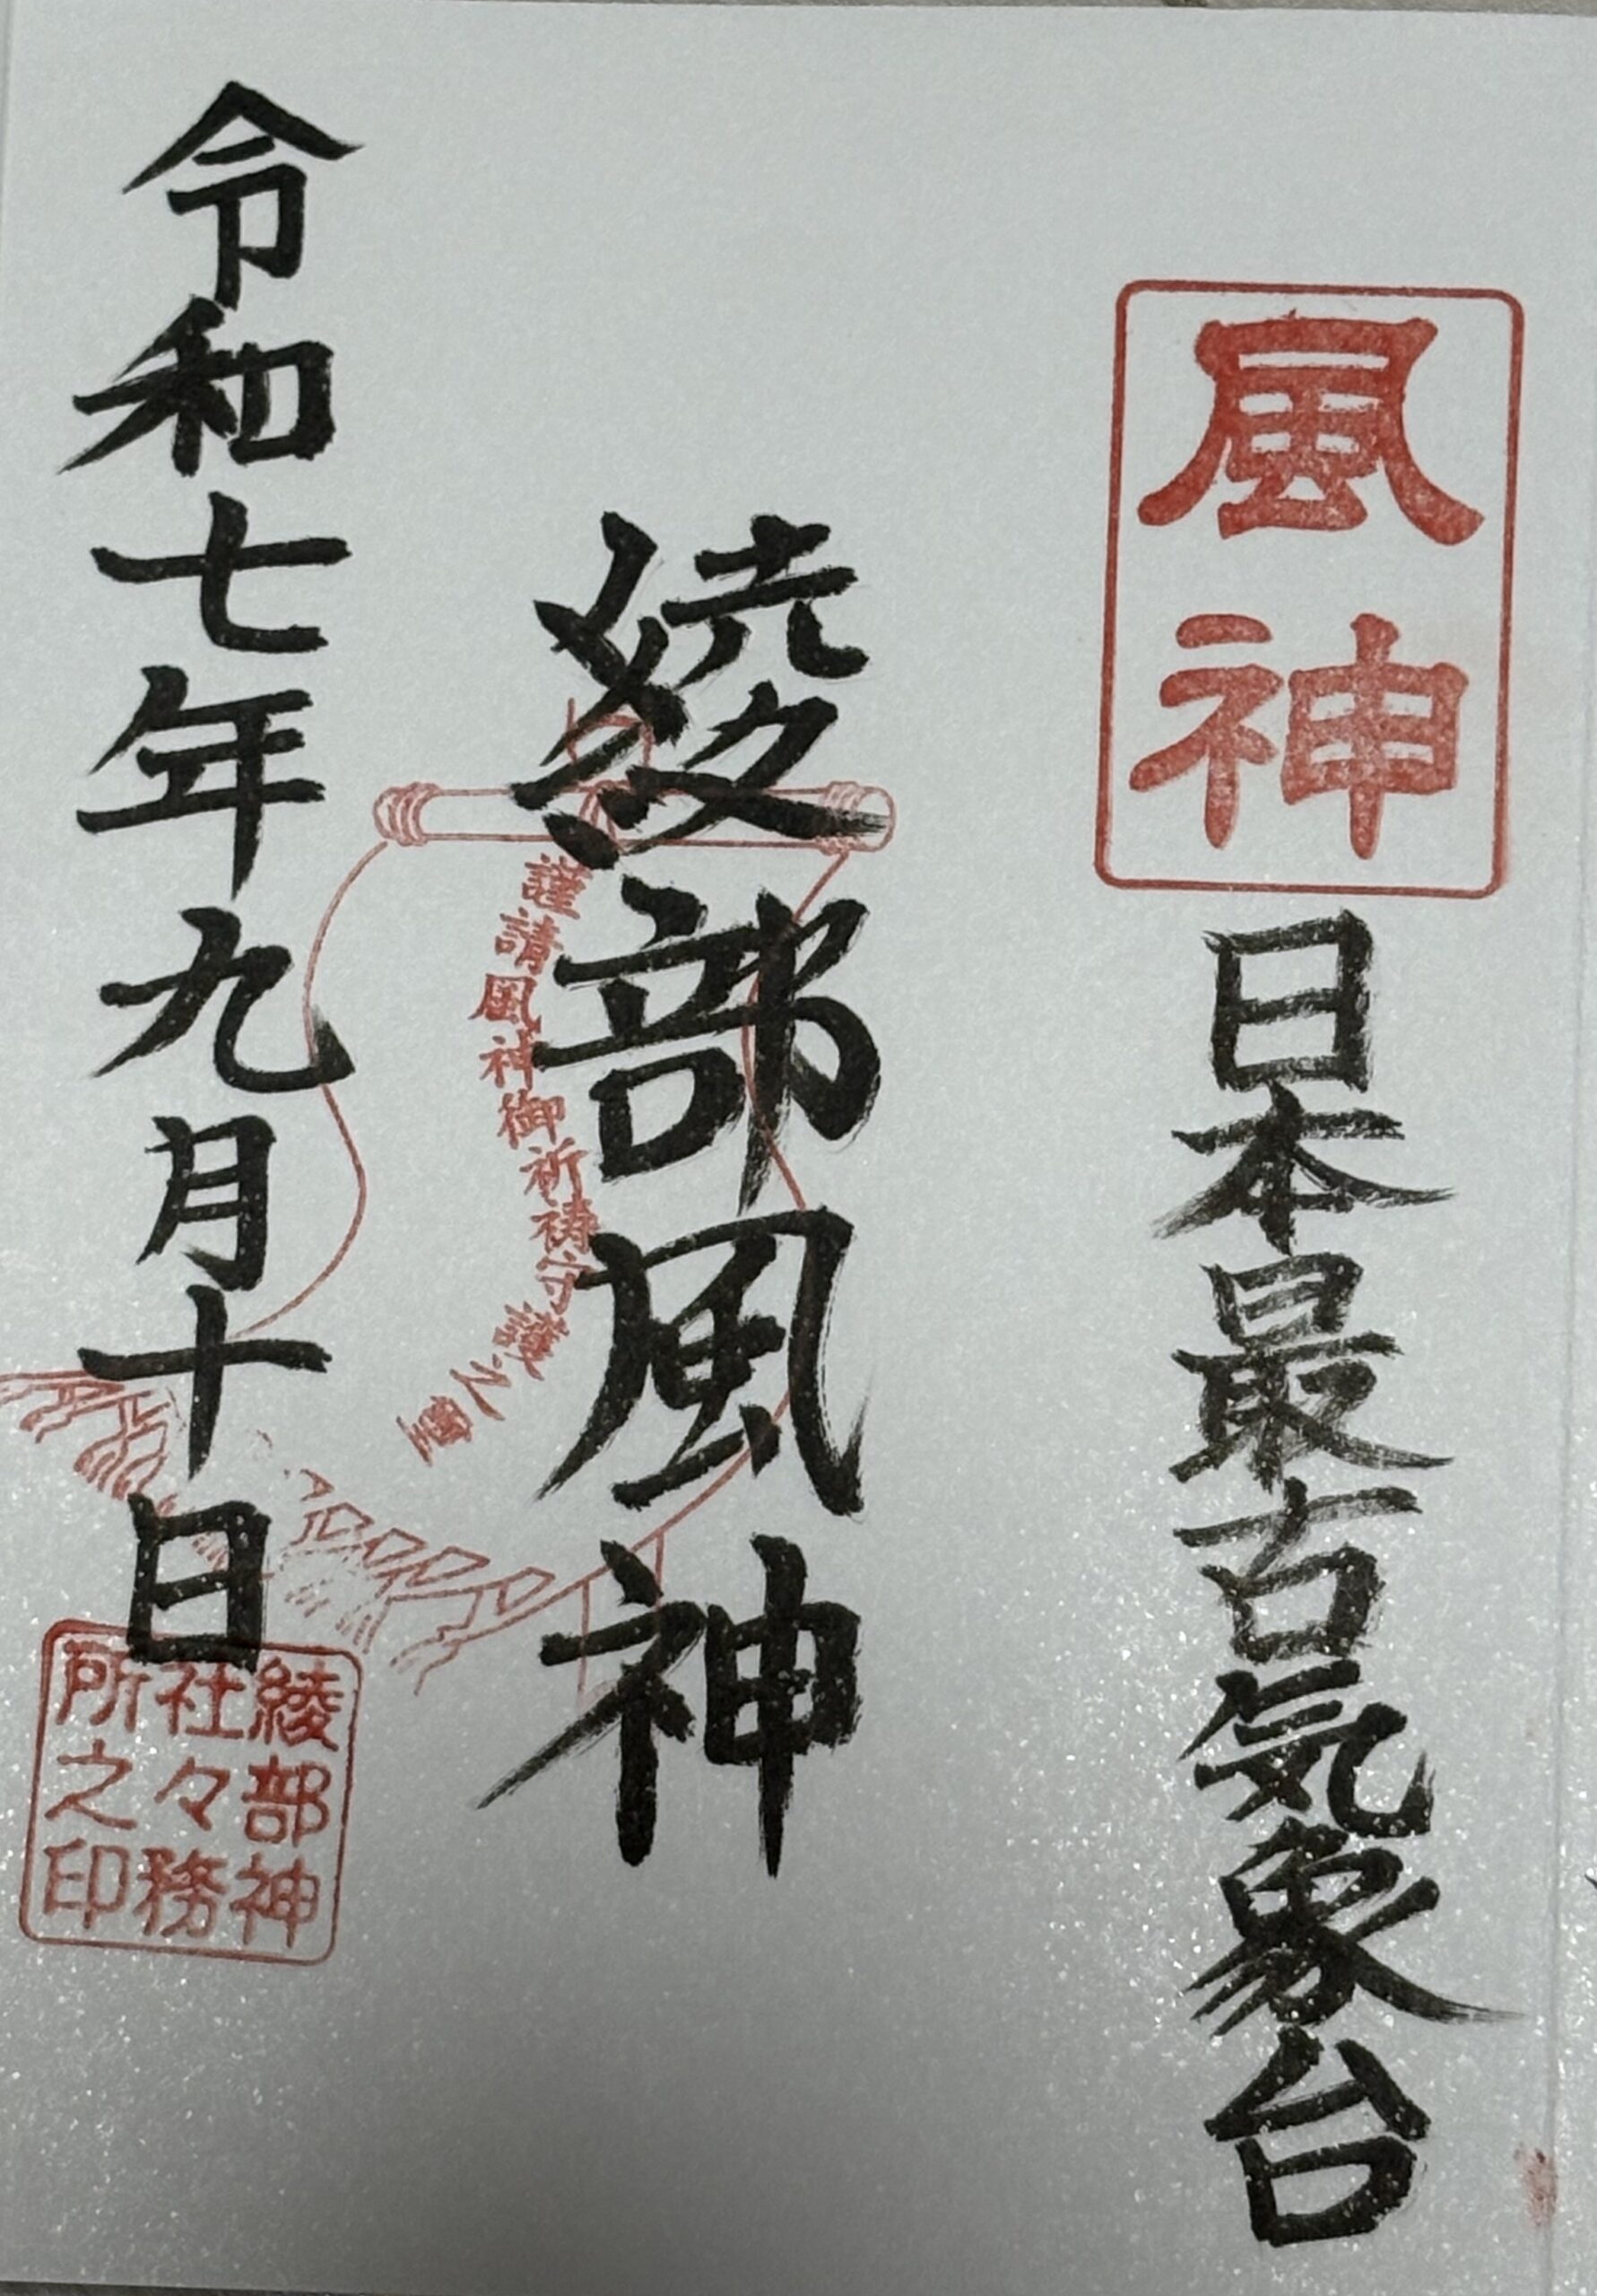 風神
日本最古気象台
綾部風神
謹請風神御祈祷守護之璽
令和七年九月十日
綾部神
社々務
所之印